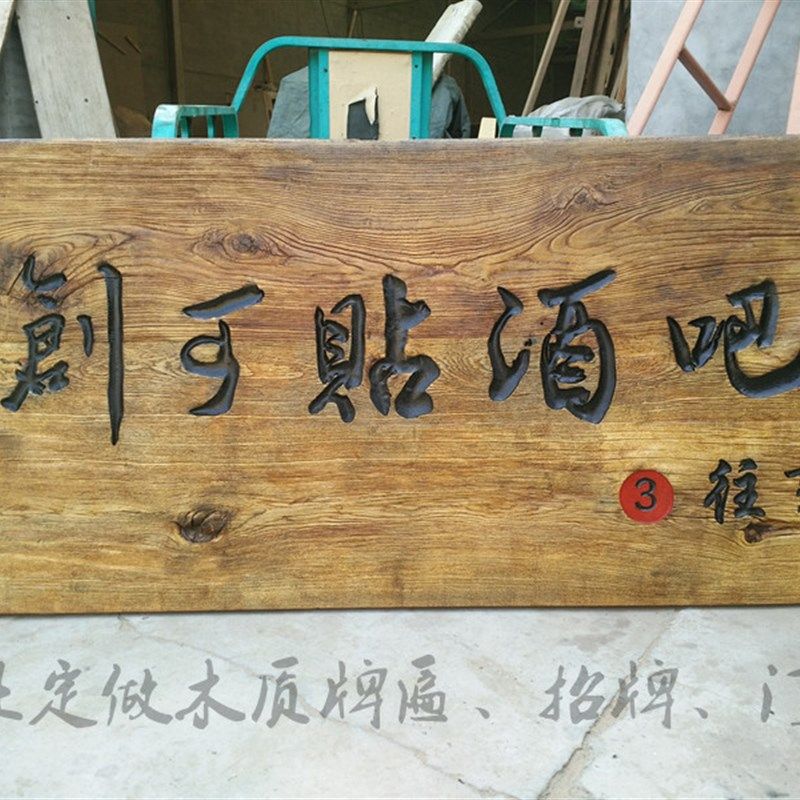 創可貼酒吧
3 往
定做木质牌匾、招牌、